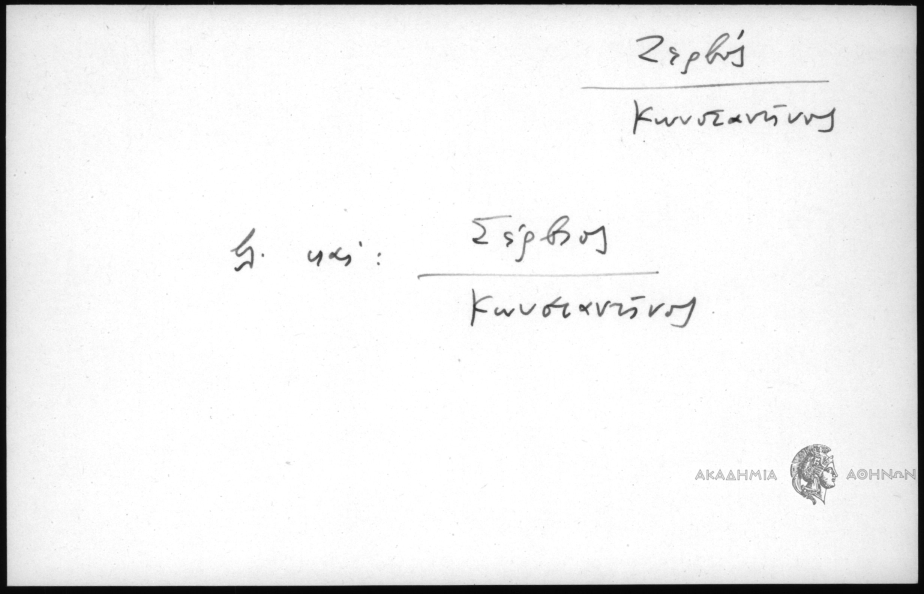 Ζερβός
Κωνσταντῖνος
βλ. καί: Σέρβιος
Κωνσταντῖνος
ΑΚΑΔΗΜΙΑ ΑΘΗΝΩΝ